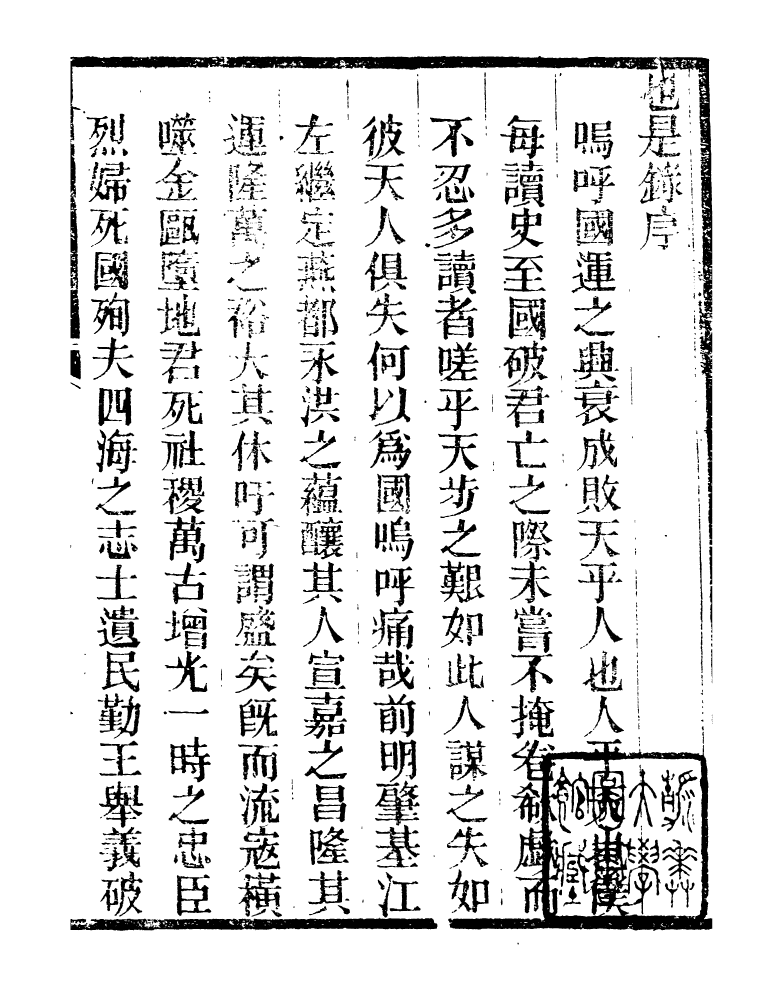 也是錄序
嗚呼國運之興衰成敗天乎人也人乎天也僕
每讀史至國破君亡之際未嘗不掩卷欷歔而
不忍多讀者嗟乎天步之艱如此人謀之失如
彼天人俱失何以爲國嗚呼痛哉前明肇基江
左繼定燕都永洪之蘊釀其人宣嘉之昌隆其
運隆萬之裕大其休吁可謂盛矣旣而流寇橫
噬金甌墮地君死社稷萬古增光一時之忠臣
烈婦死國殉夫四海之志士遺民勤王舉義破